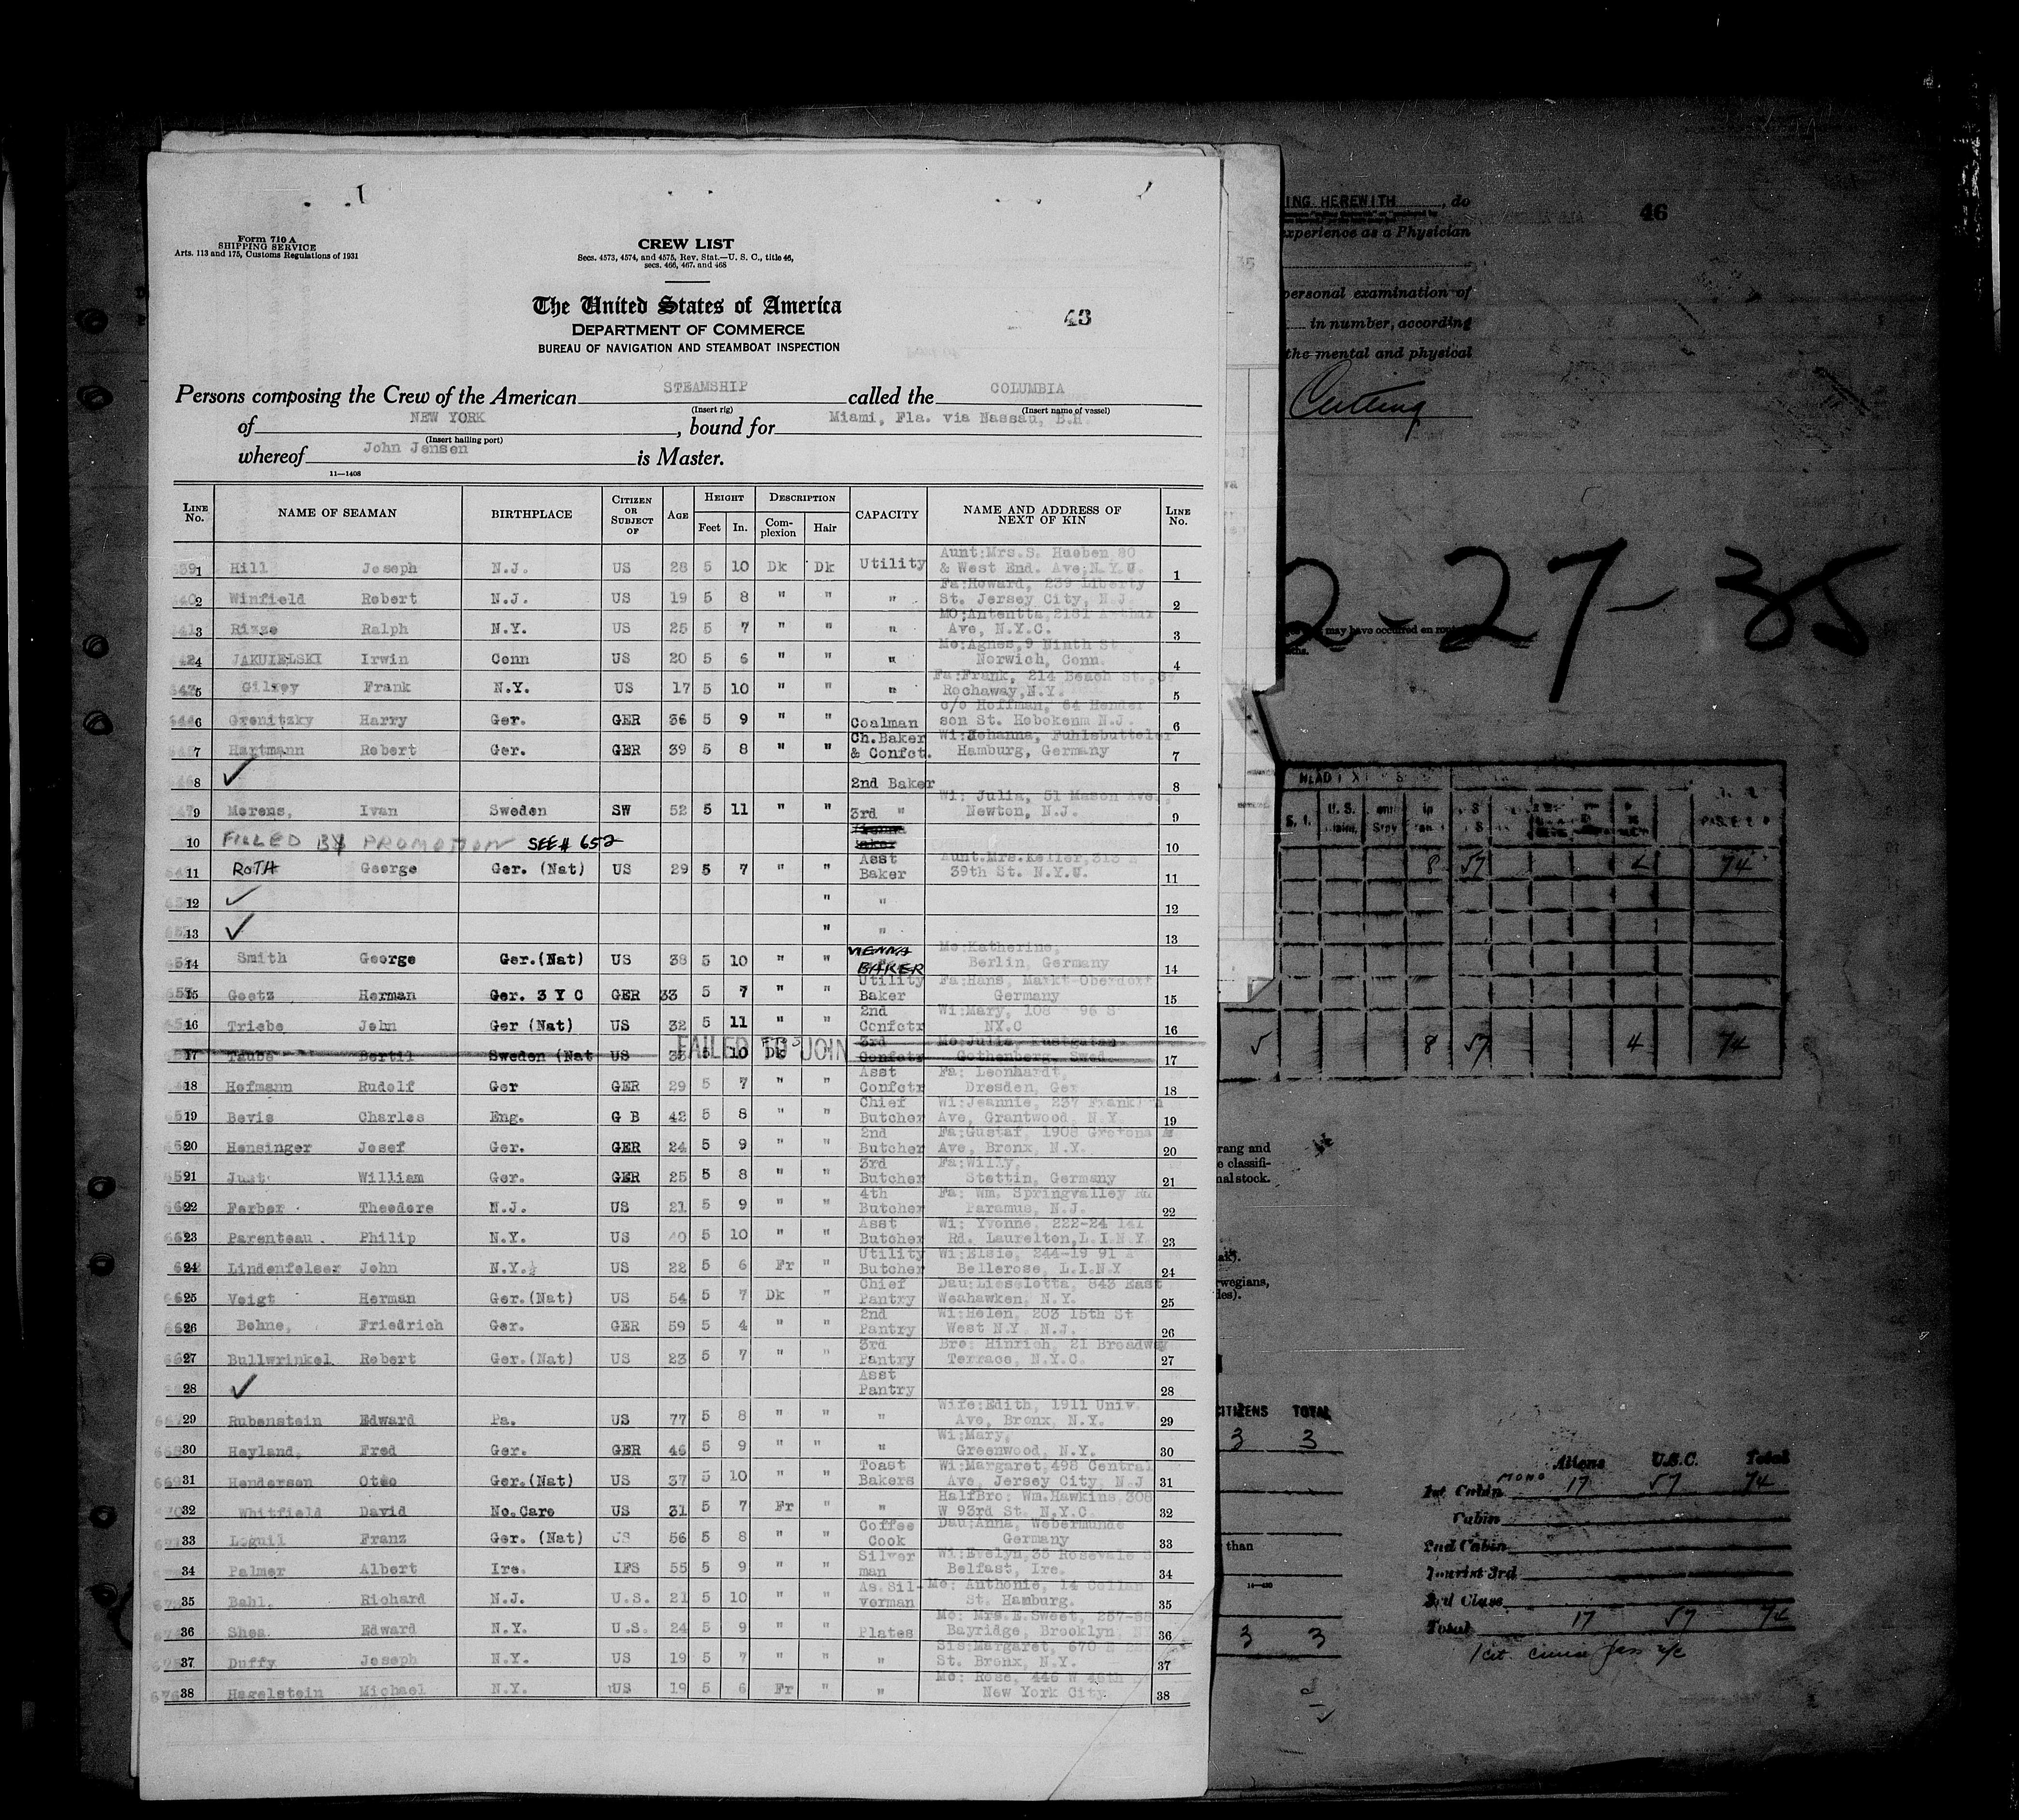 Form 710 A
SHIPPING SERVICE
Arts. 113 and 175, Customs Regulations of 1931
CREW LIST
Secs. 4573, 4574, and 4575, Rev. Stat.—U. S. C., title 46,
secs. 466, 467, and 468
The United States of America
DEPARTMENT OF COMMERCE
BUREAU OF NAVIGATION AND STEAMBOAT INSPECTION
43
Persons composing the Crew of the American STEAMSHIP called the COLUMBIA
(Insert rig) (Insert name of vessel)
of NEW YORK, bound for Miami, Fla. via Nassau, B.H.
(Insert hailing port)
whereof John Jensen is Master.
11—1408
LINE No. NAME OF SEAMAN BIRTHPLACE CITIZEN OR SUBJECT OF AGE HEIGHT Feet In. DESCRIPTION Complexion Hair CAPACITY NAME AND ADDRESS OF NEXT OF KIN LINE No.
1 Hill Joseph N.J. US 28 5 10 Dk Dk Utility Aunt:Mrs.S. Hueben 80 & West End. Ave;N.Y.U. 1
2 Winfield Robert N.J. US 19 5 8 " " " Fa:Howard, 239 Liberty St. Jersey City, N.J. 2
3 Rizzo Ralph N.Y. US 25 5 7 " " " MO;Antentta,2181 Arthur Ave, N.Y.C. 3
4 JAKUIELSKI Irwin Conn US 20 5 6 " " " Mo:Agnes,9 Ninth St Norwich, Conn. 4
5 Gilroy Frank N.Y. US 17 5 10 " " " Fa:Frank, 214 Beach St., Rochaway,N.Y. 5
6 Grenitzky Harry Ger. GER 36 5 9 " " Coalman c/o Hoffman, 64 Hender son St. Hobokenm N.J. 6
7 Hartmann Robert Ger. GER 39 5 8 " " Ch.Baker & Confct. Wi:Johanna, Fuhlsbutteler Hamburg, Germany 7
8 ✓ 2nd Baker 8
9 Merens, Ivan Sweden SW 52 5 11 " " 3rd " Wi: Julia, 51 Mason Ave., Newton, N.J. 9
10 FILLED BY PROMOTION SEE# 652 Vienna Baker 10
11 ROTH George Ger. (Nat) US 29 5 7 " " Asst Baker Aunt.Mrs.Keller,313 39th St. N.Y.U. 11
12 ✓ " " 12
13 ✓ " " 13
14 Smith George Ger.(Nat) US 38 5 10 " " VIENNA BAKER Mo:Katherine, Berlin, Germany 14
15 Goetz Herman Ger. 3 Y C GER 33 5 7 " " Utility Baker Fa:Hans, Markt Oberdorf Germany 15
16 Triebe John Ger (Nat) US 32 5 11 " " 2nd Confctr Wi:Mary, 108 96 S NY.C 16
17 Taube Bertil Sweden (Nat US 33 5 10 Dk 3rd Confctr Gothenberg, Swed. 17
FAILED TO JOIN
18 Hofmann Rudolf Ger GER 29 5 7 " " Asst Confctr Fa: Leonhardt, Dresden, Ger 18
19 Bevis Charles Eng. G B 42 5 8 " " Chief Butcher Wi:Jeannie, 237 Franklin Ave, Grantwood, N.Y. 19
20 Hensinger Josef Ger. GER 24 5 9 " " 2nd Butcher Fa:Gustaf, 1908 Grotona Ave, Bronx, N.Y. 20
21 Just William Ger. GER 25 5 8 " " 3rd Butcher Fa:Willy, Stettin, Germany 21
22 Farber Theodore N.J. US 21 5 9 " " 4th Butcher Fa: Wm. Springvalley Rd Paramus, N.J. 22
23 Parenteau Philip N.Y. US 40 5 10 " " Asst Butcher Wi: Yvonne, 222-24 141 Rd. Laurelton,L.I.N.Y. 23
24 Lindenfelser John N.Y. US 22 5 6 Fr " Utility Butcher Wi:Elsie, 244-19 91 A Bellerose, L.I.N.Y 24
25 Voigt Herman Ger.(Nat) US 54 5 7 Dk " Chief Pantry Dau:Liesslotta, 843 East Weahawken, N.Y. 25
26 Bohne, Friedrich Ger. GER 59 5 4 " " 2nd Pantry Wi:Helen, 203 15th St West N.Y. N.J. 26
27 Bullwrinkel Robert Ger.(Nat) US 23 5 7 " " 3rd Pantry Bro: Hinrich, 21 Broadway Terrace, N.Y.C. 27
28 ✓ Asst Pantry 28
29 Rubenstein Edward Pa. US 77 5 8 " " " Wife:Edith, 1911 Univ. Ave, Bronx, N.Y. 29
30 Heyland, Fred Ger. GER 46 5 9 " " " Wi:Mary, Greenwood, N.Y. 30
31 Henderson Otto Ger.(Nat) US 37 5 10 " " Toast Bakers Wi:Margaret,498 Central Ave, Jersey City, N.J 31
32 Whitfield David No.Care US 31 5 7 Fr " " HalfBro: Wm.Hawkins,308 W 93rd St. N.Y.C. 32
33 Loguil Franz Ger. (Nat) US 56 5 8 " " Coffee Cook Dau:Anna, Webermunde Germany 33
34 Palmer Albert Ire. IFS 55 5 9 " " Silver man Wi:Evelyn,35 Rosevale S Belfast, Ire. 34
35 Bahl, Richard N.J. U.S. 21 5 10 " " As.Sil- verman Mo: Anthonie, 14 Collan St. Hamburg. 35
36 Shea Edward N.Y. U.S. 24 5 9 " " Plates Mo: Mrs.E.Sweet, 257-55 Bayridge, Brooklyn, 36
37 Duffy Joseph N.Y. US 19 5 7 " " " Sis:Margaret, 670 E St. Bronx, N.Y. 37
38 Hagelstein Michael N.Y. US 19 5 6 Fr " " Mo: Rose, 446 W 48th New York City. 38
ING HEREWITH, do
46
experience as a Physician
personal examination of
in number, according
the mental and physical
Cutting
2-27-35
may have occurred en rou
U.S.
8 57 74
5 8 57 4 74
rang and
e classifi-
nal stock.
wegians,
les).
CITIZENS TOTAL
3 3
than
14—430
3 3
Aliens U.S.C. Total
1st Cabin 17 57 74
Cabin
2nd Cabin
Tourist 3rd
3rd Class
Total 17 57 74